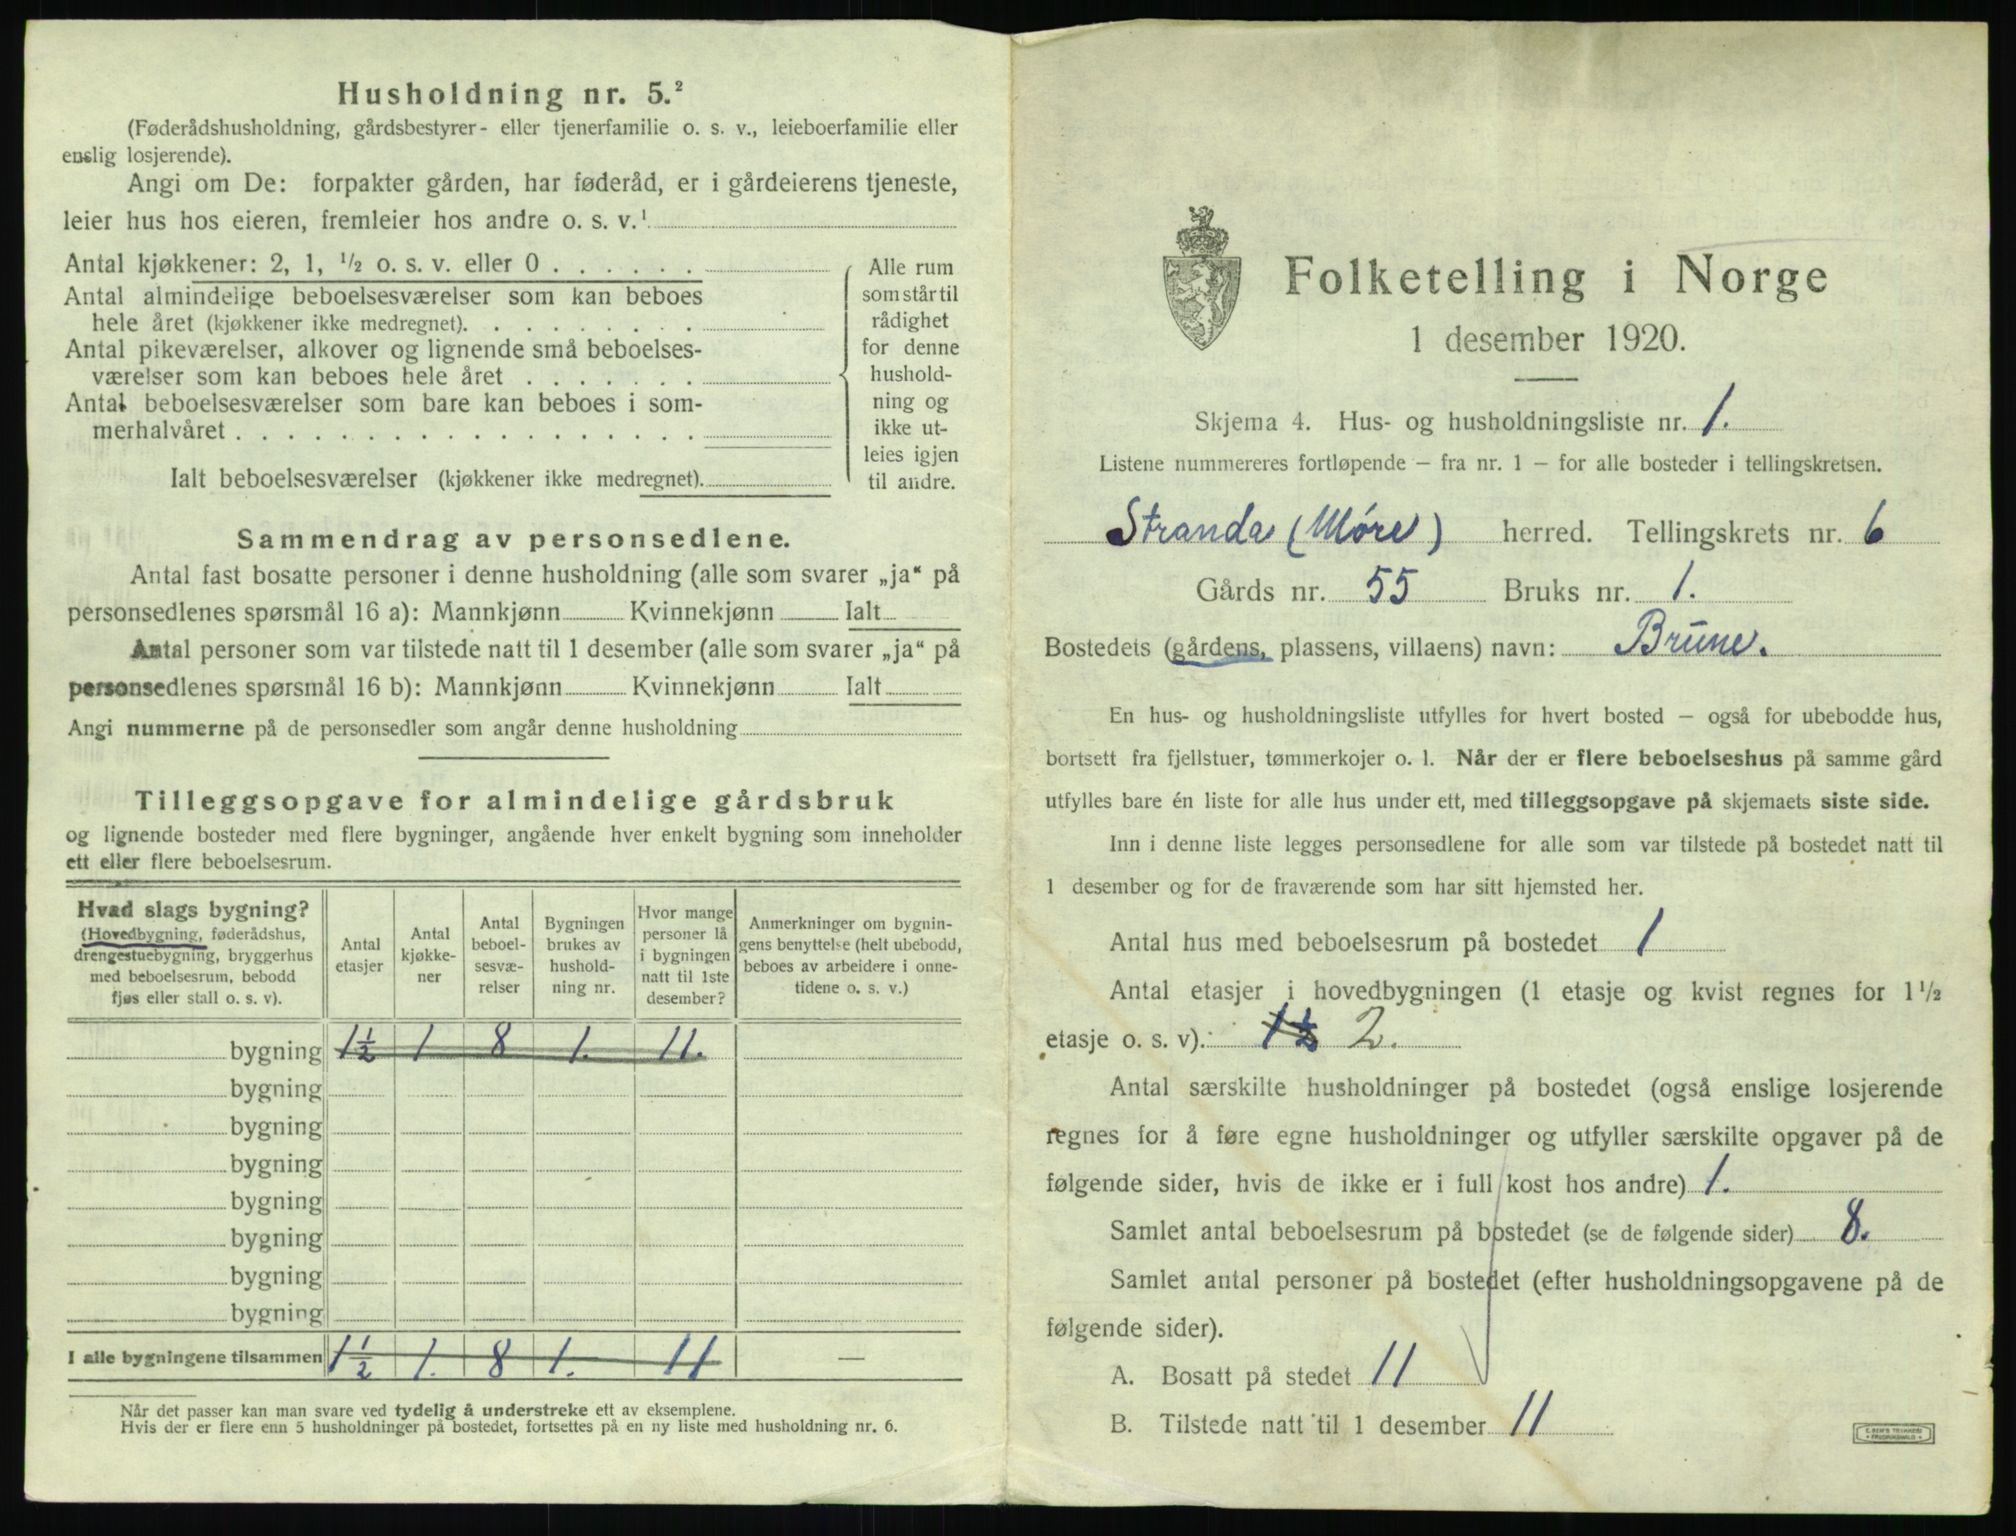 Husholdning nr. 5.²
(Føderådshusholdning, gårdsbestyrer- eller tjenerfamilie o. s. v., leieboerfamilie eller
enslig losjerende).
Angi om De: forpakter gården, har føderåd, er i gårdeierens tjeneste,
leier hus hos eieren, fremleier hos andre o. s. v.¹
Antal kjøkkener: 2, 1, ½ o. s. v. eller 0 . . . . . .
Antal almindelige beboelsesværelser som kan beboes
hele året (kjøkkener ikke medregnet). . . . . . . . .
Antal pikeværelser, alkover og lignende små beboelses-
værelser som kan beboes hele året . . . . . . .
Antal beboelsesværelser som bare kan beboes i som-
merhalvåret . . . . . . . . . . . . . . . . . .
Ialt beboelsesværelser (kjøkkener ikke medregnet).
Alle rum
som står til
rådighet
for denne
hushold-
ning og
ikke ut-
leies igjen
til andre.
Sammendrag av personsedlene.
Antal fast bosatte personer i denne husholdning (alle som svarer „ja“ på
personsedlenes spørsmål 16 a): Mannkjønn Kvinnekjønn Ialt
Antal personer som var tilstede natt til 1 desember (alle som svarer „ja“ på
personsedlenes spørsmål 16 b): Mannkjønn Kvinnekjønn Ialt
Angi nummerne på de personsedler som angår denne husholdning
Tilleggsopgave for almindelige gårdsbruk
og lignende bosteder med flere bygninger, angående hver enkelt bygning som inneholder
ett eller flere beboelsesrum.
Hvad slags bygning?
(Hovedbygning, føderådshus,
drengestuebygning, bryggerhus
med beboelsesrum, bebodd
fjøs eller stall o. s. v).
Antal
etasjer
Antal
kjøkke-
ner
Antal
beboel-
sesvæ-
relser
Bygningen
brukes av
hushold-
ning nr.
Hvor mange
personer lå
i bygningen
natt til 1ste
desember?
Anmerkninger om bygnin-
gens benyttelse (helt ubebodd,
beboes av arbeidere i onne-
tidene o. s. v.)
bygning 1½ 1 8 1. 11.
bygning
bygning
bygning
bygning
bygning
bygning
bygning
I alle bygningene tilsammen 1½ 1. 8 1. 11 —
Når det passer kan man svare ved tydelig å understreke ett av eksemplene.
Hvis der er flere enn 5 husholdninger på bostedet, fortsettes på en ny liste med husholdning nr. 6.
Folketelling i Norge
1 desember 1920.
Skjema 4. Hus- og husholdningsliste nr. 1.
Listene nummereres fortløpende – fra nr. 1 – for alle bosteder i tellingskretsen.
Stranda (Møre) herred. Tellingskrets nr. 6
Gårds nr. 55 Bruks nr. 1.
Bostedets (gårdens, plassens, villaens) navn: Brune.
En hus- og husholdningsliste utfylles for hvert bosted – også for ubebodde hus,
bortsett fra fjellstuer, tømmerkojer o. l. Når der er flere beboelseshus på samme gård
utfylles bare én liste for alle hus under ett, med tilleggsopgave på skjemaets siste side.
Inn i denne liste legges personsedlene for alle som var tilstede på bostedet natt til
1 desember og for de fraværende som har sitt hjemsted her.
Antal hus med beboelsesrum på bostedet 1
Antal etasjer i hovedbygningen (1 etasje og kvist regnes for 1½
etasje o. s. v). 1½ 2.
Antal særskilte husholdninger på bostedet (også enslige losjerende
regnes for å føre egne husholdninger og utfyller særskilte opgaver på de
følgende sider, hvis de ikke er i full kost hos andre) 1.
Samlet antal beboelsesrum på bostedet (se de følgende sider) 8.
Samlet antal personer på bostedet (efter husholdningsopgavene på de
følgende sider).
A. Bosatt på stedet 11
B. Tilstede natt til 1 desember 11